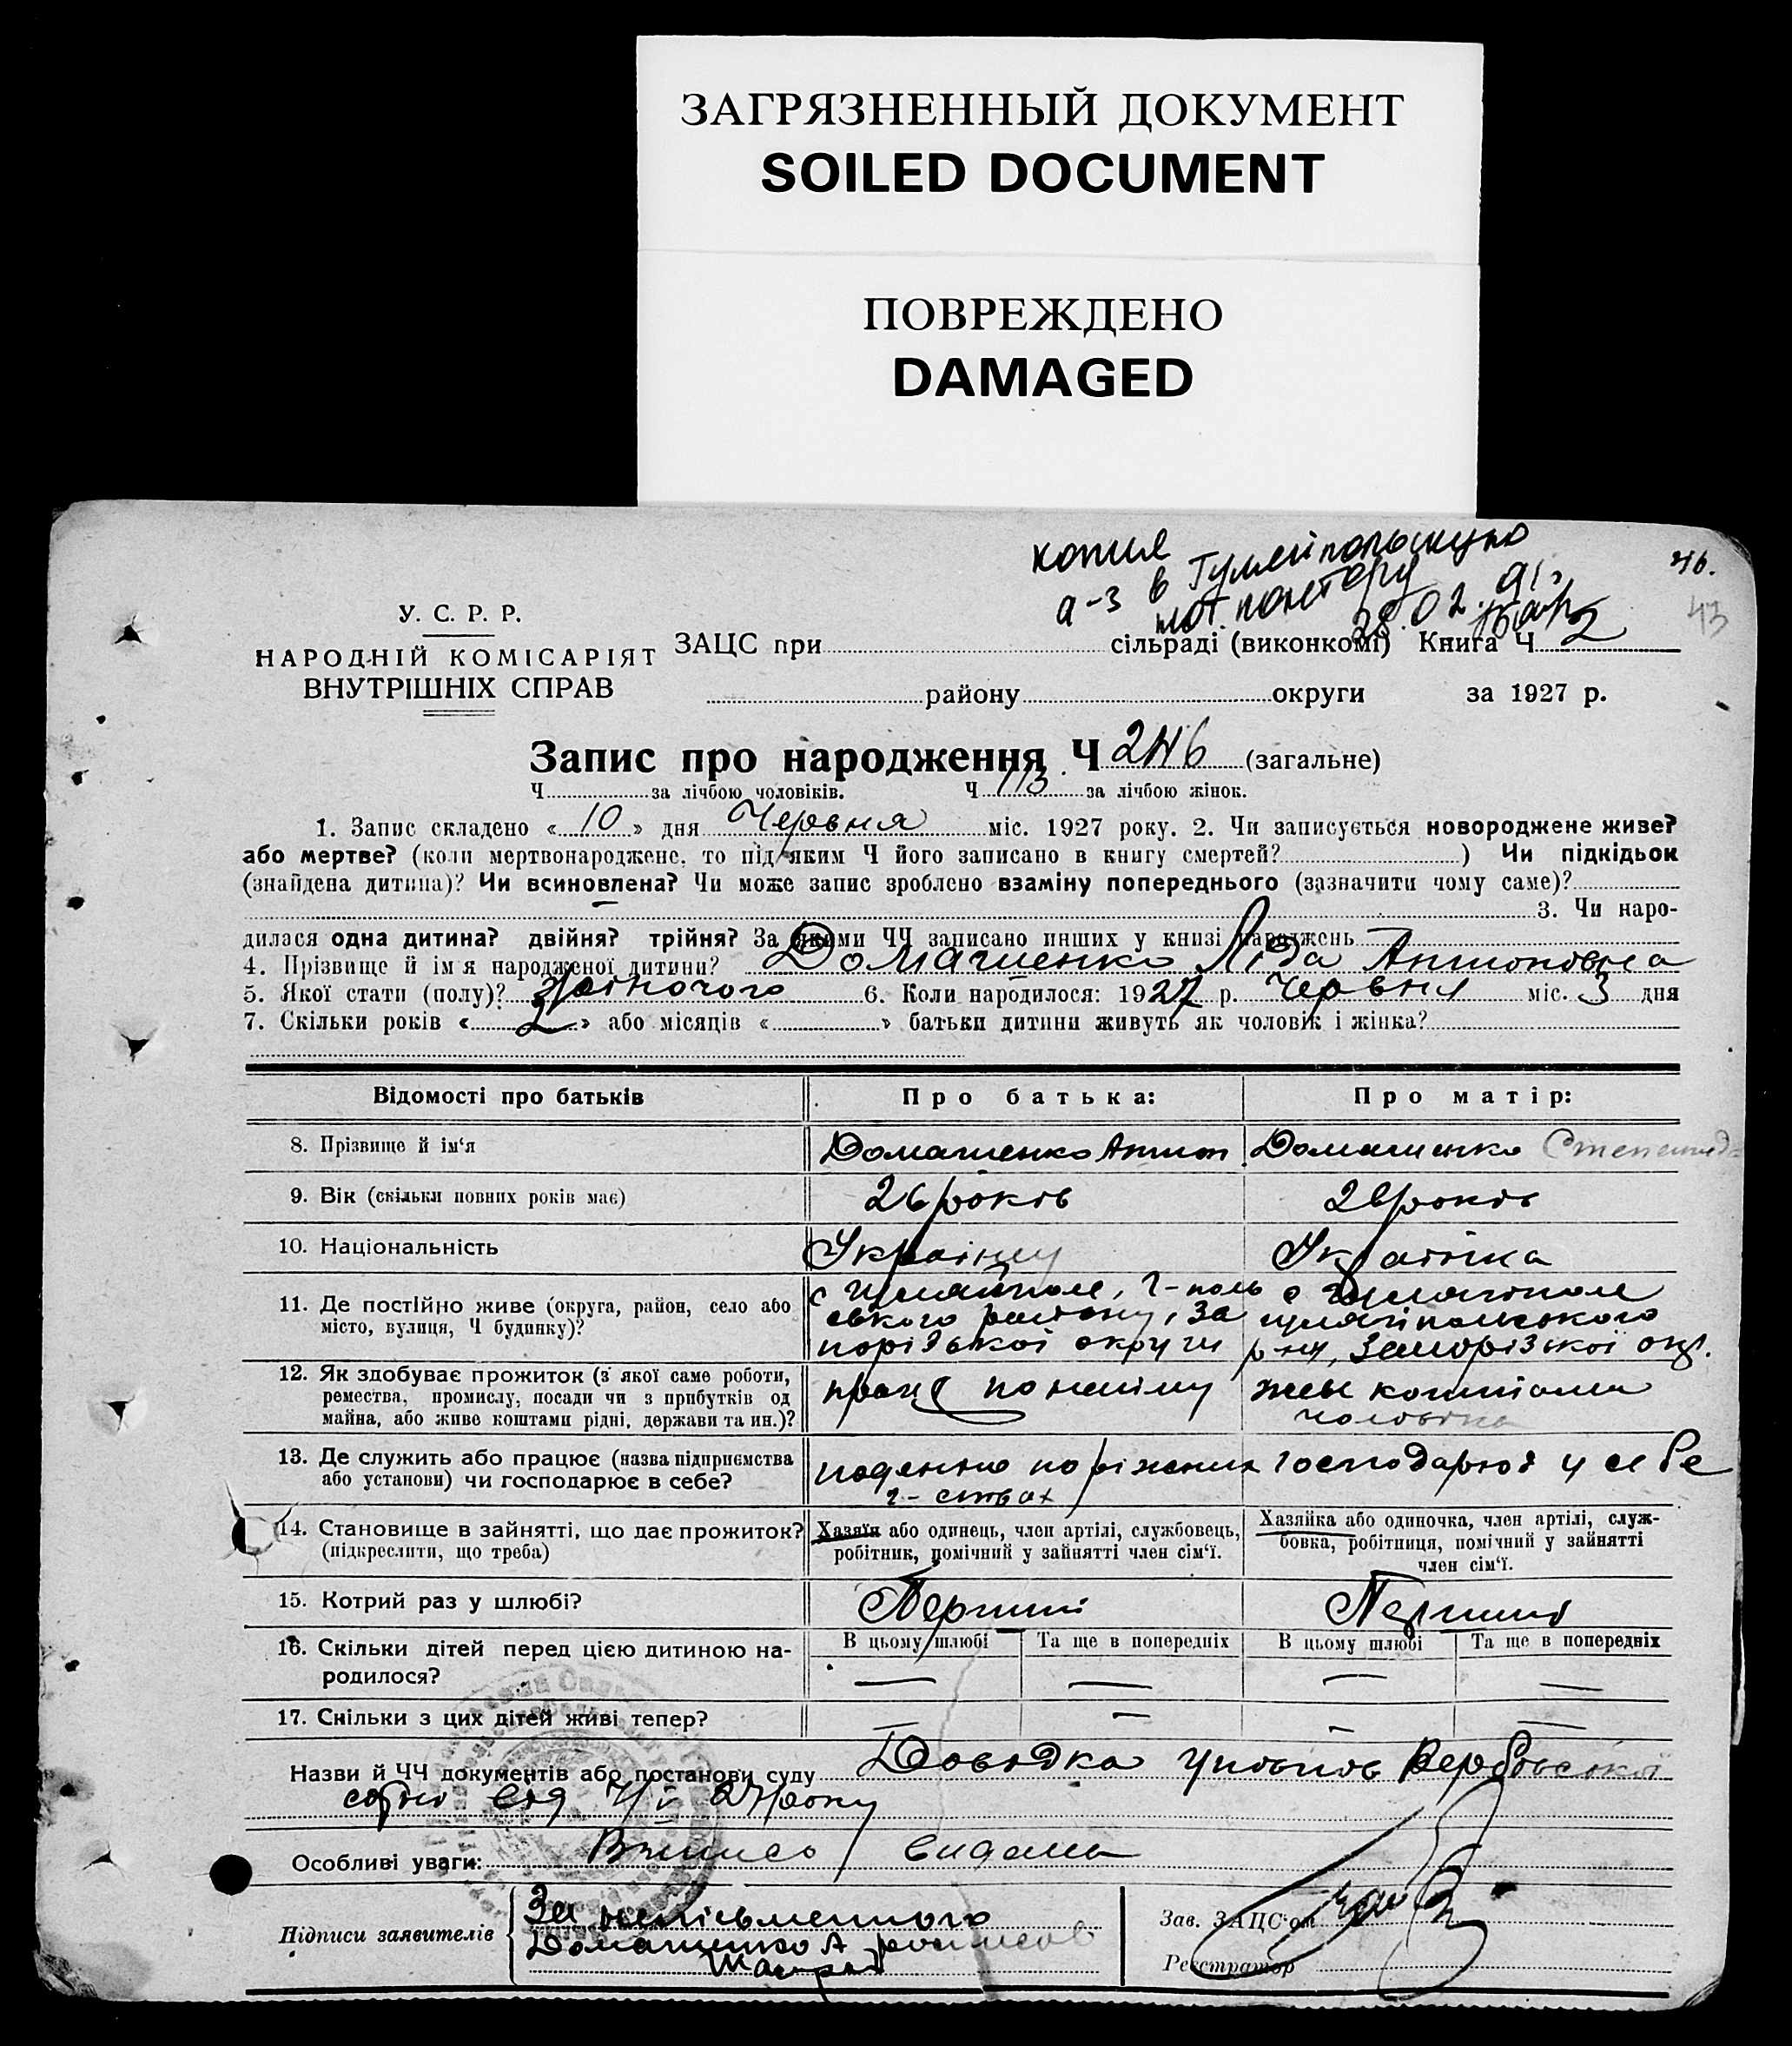 ЗАГРЯЗНЕННЫЙ ДОКУМЕНТ
SOILED DOCUMENT
ПОВРЕЖДЕНО
DAMAGED
копия
а-з в Гуляйпольскую
нот. контору
28.02.91г.
46.
43
У. С. Р. Р.
НАРОДНІЙ КОМІСАРІЯТ
ВНУТРІШНІХ СПРАВ
ЗАЦС при сільраді (виконкомі) Книга Ч 2
району округи за 1927 р.
Запис про народження Ч 246 (загальне)
Ч за лічбою чоловіків. Ч 113 за лічбою жінок.
1. Запис складено « 10 » дня Червня міс. 1927 року. 2. Чи записується новороджене живе?
або мертве? (коли мертвонароджене, то під яким Ч його записано в книгу смертей? ) Чи підкідьок
(знайдена дитина)? Чи всиновлена? Чи може запис зроблено взаміну попереднього (зазначити чому саме)?
3. Чи наро-
дилася одна дитина? двійня? трійня? За якими ЧЧ записано инших у книзі народжень
4. Прізвище й ім'я народженої дитини? Домашенко Ліда Антоновна
5. Якої стати (полу)? жіночого 6. Коли народилося: 1927 р. Червня міс. 3 дня
7. Скільки років « 2 » або місяців « » батьки дитини живуть як чоловік і жінка?
Відомості про батьків Про батька: Про матір:
8. Прізвище й ім'я Домашенко Антон Домашенко Степанида
9. Вік (скільки повних років має) 26 років років
10. Національність Українец Українка
11. Де постійно живе (округа, район, село або
місто, вулиця, Ч будинку)?
с Гуляйполе, Г-поль
ського району, За
порізької округи
с Гуляйполе
гуляйпольського
р-ну, Запорізької окр.
12. Як здобуває прожиток (з якої саме роботи,
ремества, промислу, посади чи з прибутків од
майна, або живе коштами рідні, держави та ин.)?
праця по найму
живе коштами
чоловіка
13. Де служить або працює (назва підприємства
або установи) чи господарює в себе?
поденно по ріжних
господарює у себе
14. Становище в зайнятті, що дає прожиток?
(підкреслити, що треба)
Хазяїн або одинець, член артілі, службовець,
робітник, помічний у зайнятті член сім'ї.
Хазяйка або одиночка, член артілі, служ-
бовка, робітниця, помічний у зайнятті
член сім'ї.
15. Котрий раз у шлюбі? Перший Перший
16. Скільки дітей перед цією дитиною на-
родилося?
В цьому шлюбі Та ще в попередніх В цьому шлюбі Та ще в попередніх
— — — —
17. Скільки з цих дітей живі тепер? — — — —
Назви й ЧЧ документів або постанови суду Довідка Вербовської
від року
Особливі уваги: видана
Підписи заявителів
За неписьменного
Домашенко А розписався
Зав. ЗАЦС'ом
Реєстратор